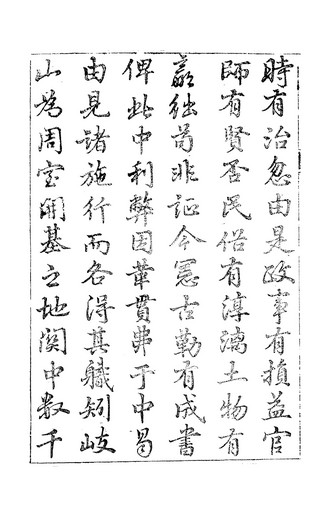 時有治忽由是政事有損益官
師有賢否民俗有淳漓土物有
贏絀苟非証今憲古勒有成書
俾此中利弊因革貫串于中曷
由見諸施行而各得其職矧岐
山為周室開基之地関中數千